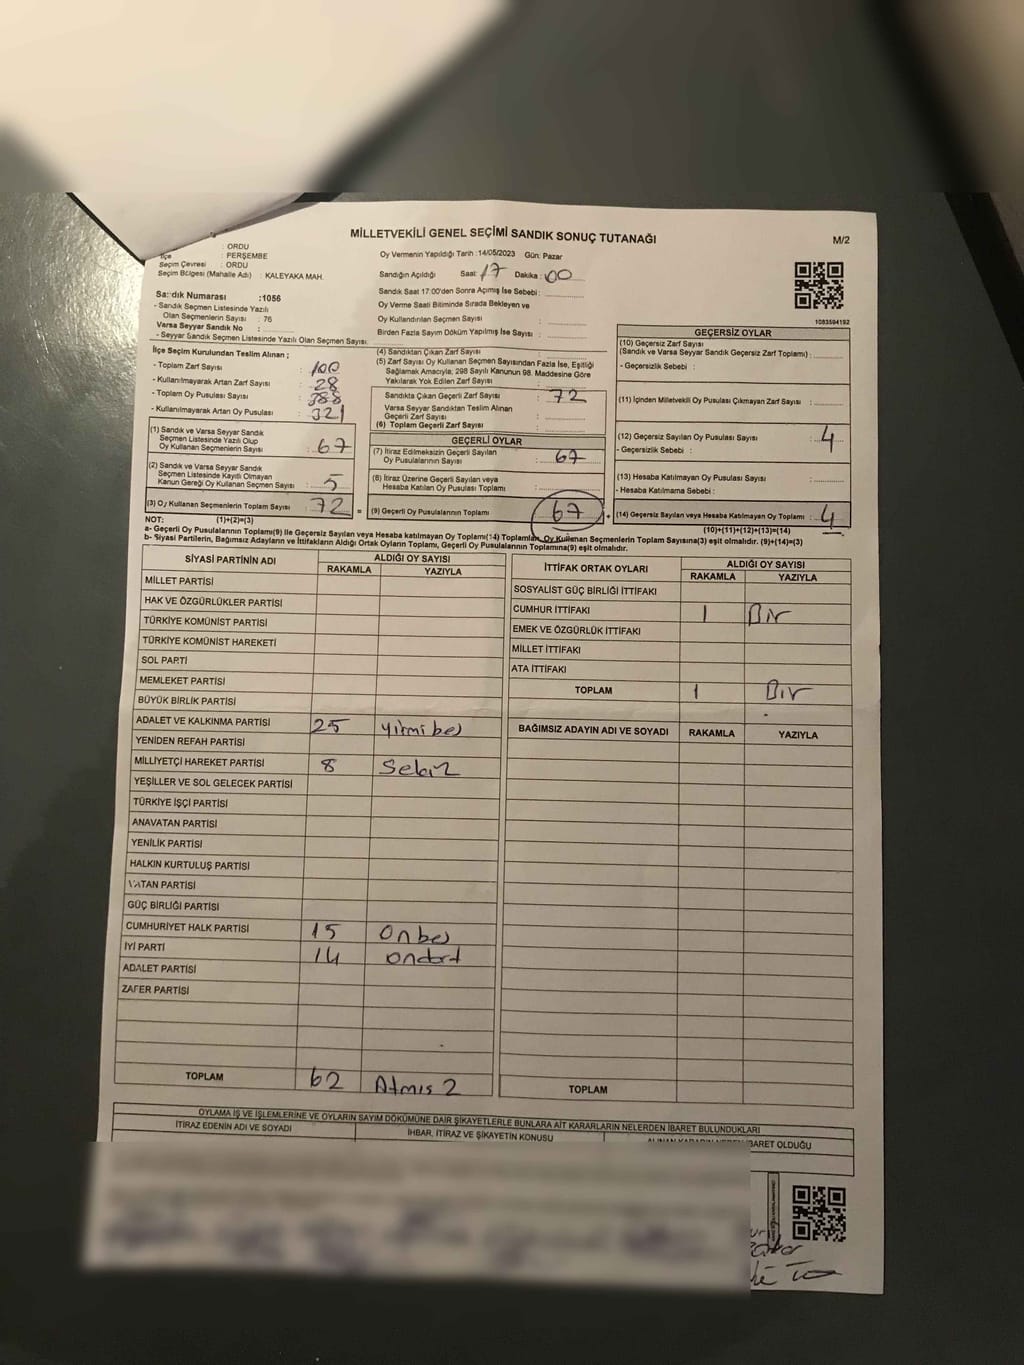 MİLLETVEKİLİ GENEL SEÇİMİ SANDIK SONUÇ TUTANAĞI
M/2
: ORDU
İlçe : PERŞEMBE
Seçim Çevresi : ORDU
Seçim Bölgesi (Mahalle Adı) : KALEYAKA MAH.
Oy Vermenin Yapıldığı Tarih :14/05/2023 Gün: Pazar
Sandığın Açıldığı Saat: 17 Dakika: 00
Sandık Saat 17:00'den Sonra Açımış İse Sebebi :
Oy Verme Saati Bitiminde Sırada Bekleyen ve
Oy Kullandırılan Seçmen Sayısı :
Birden Fazla Sayım Döküm Yapılmış İse Sayısı :
Sandık Numarası :1056
- Sandık Seçmen Listesinde Yazılı
Olan Seçmenlerin Sayısı : 76
Varsa Seyyar Sandık No :
- Seyyar Sandık Seçmen Listesinde Yazılı Olan Seçmen Sayısı:
1083594192
İlçe Seçim Kurulundan Teslim Alınan ;
- Toplam Zarf Sayısı : 100
- Kullanılmayarak Artan Zarf Sayısı : 28
- Toplam Oy Pusulası Sayısı : 388
- Kullanılmayarak Artan Oy Pusulası : 321
(1) Sandık ve Varsa Seyyar Sandık
Seçmen Listesinde Yazılı Olup
Oy Kullanan Seçmenlerin Sayısı : 67
(2) Sandık ve Varsa Seyyar Sandık
Seçmen Listesinde Kayıtlı Olmayan
Kanun Gereği Oy Kullanan Seçmen Sayısı : 5
(3) Oy Kullanan Seçmenlerin Toplam Sayısı : 72
(4) Sandıktan Çıkan Zarf Sayısı :
(5) Zarf Sayısı Oy Kullanan Seçmen Sayısından Fazla İse, Eşitliği
Sağlamak Amacıyla, 298 Sayılı Kanunun 98. Maddesine Göre
Yakılarak Yok Edilen Zarf Sayısı :
Sandıkta Çıkan Geçerli Zarf Sayısı : 72
Varsa Seyyar Sandıktan Teslim Alınan
Geçerli Zarf Sayısı :
(6) Toplam Geçerli Zarf Sayısı :
GEÇERLİ OYLAR
(7) İtiraz Edilmeksizin Geçerli Sayılan
Oy Pusulalarının Sayısı : 67
(8) İtiraz Üzerine Geçerli Sayılan veya
Hesaba Katılan Oy Pusulası Toplamı :
= (9) Geçerli Oy Pusulalarının Toplamı : 67 +
GEÇERSİZ OYLAR
(10) Geçersiz Zarf Sayısı
(Sandık ve Varsa Seyyar Sandık Geçersiz Zarf Toplamı) :
- Geçersizlik Sebebi :
(11) İçinden Milletvekili Oy Pusulası Çıkmayan Zarf Sayısı :
(12) Geçersiz Sayılan Oy Pusulası Sayısı : 4
- Geçersizlik Sebebi :
(13) Hesaba Katılmayan Oy Pusulası Sayısı :
- Hesaba Katılmama Sebebi :
(14) Geçersiz Sayılan veya Hesaba Katılmayan Oy Toplamı : 4
NOT: (1)+(2)=(3)
(10)+(11)+(12)+(13)=(14)
a- Geçerli Oy Pusulalarının Toplamı(9) ile Geçersiz Sayılan veya Hesaba katılmayan Oy Toplamı(14) Toplamları, Oy Kullanan Seçmenlerin Toplam Sayısına(3) eşit olmalıdır. (9)+(14)=(3)
b- Siyasi Partilerin, Bağımsız Adayların ve İttifakların Aldığı Ortak Oyların Toplamı, Geçerli Oy Pusulalarının Toplamına(9) eşit olmalıdır.
SİYASİ PARTİNİN ADI ALDIĞI OY SAYISI
RAKAMLA YAZIYLA
MİLLET PARTİSİ
HAK VE ÖZGÜRLÜKLER PARTİSİ
TÜRKİYE KOMÜNİST PARTİSİ
TÜRKİYE KOMÜNİST HAREKETİ
SOL PARTİ
MEMLEKET PARTİSİ
BÜYÜK BİRLİK PARTİSİ
ADALET VE KALKINMA PARTİSİ 25 yirmi beş
YENİDEN REFAH PARTİSİ
MİLLİYETÇİ HAREKET PARTİSİ 8 Sekiz
YEŞİLLER VE SOL GELECEK PARTİSİ
TÜRKİYE İŞÇİ PARTİSİ
ANAVATAN PARTİSİ
YENİLİK PARTİSİ
HALKIN KURTULUŞ PARTİSİ
VATAN PARTİSİ
GÜÇ BİRLİĞİ PARTİSİ
CUMHURİYET HALK PARTİSİ 15 Onbeş
İYİ PARTİ 14 ondört
ADALET PARTİSİ
ZAFER PARTİSİ
TOPLAM 62 Atmış 2
İTTİFAK ORTAK OYLARI ALDIĞI OY SAYISI
RAKAMLA YAZIYLA
SOSYALİST GÜÇ BİRLİĞİ İTTİFAKI
CUMHUR İTTİFAKI 1 Bir
EMEK VE ÖZGÜRLÜK İTTİFAKI
MİLLET İTTİFAKI
ATA İTTİFAKI
TOPLAM 1 Bir
BAĞIMSIZ ADAYIN ADI VE SOYADI RAKAMLA YAZIYLA
TOPLAM
OYLAMA İŞ VE İŞLEMLERİNE VE OYLARIN SAYIM DÖKÜMÜNE DAİR ŞİKAYETLERLE BUNLARA AİT KARARLARIN NELERDEN İBARET BULUNDUKLARI
İTİRAZ EDENİN ADI VE SOYADI İHBAR, İTİRAZ VE ŞİKAYETİN KONUSU İBARET OLDUĞU